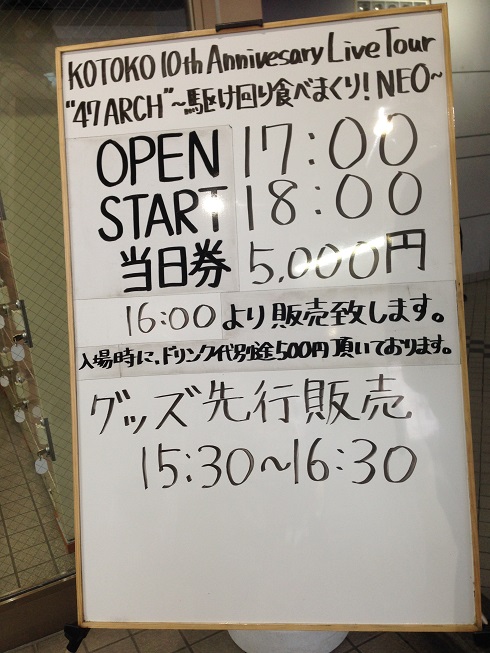 KOTOKO 10th Annivesary Live Tour
"47 ARCH"～駆け回り食べまくり！NEO～
OPEN 17:00
START 18:00
当日券 5,000円
16:00より販売致します。
入場時に、ドリンク代別途500円頂いております。
グッズ先行販売
15:30～16:30